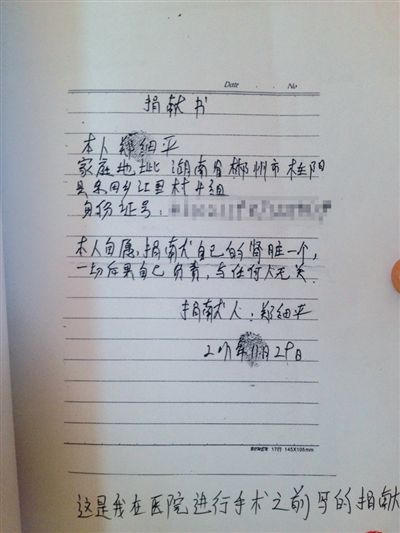 Date No
捐献书
本人郑细平
家庭地址 湖南省郴州市桂阳
县余田乡江里村4组
身份证号:
本人自愿,捐献自己的肾脏一个,
一切后果自己负责,与任何人无关.
捐献人:郑细平
月29日
17行 145X106mm
这是我在医院进行手术之前写的捐献